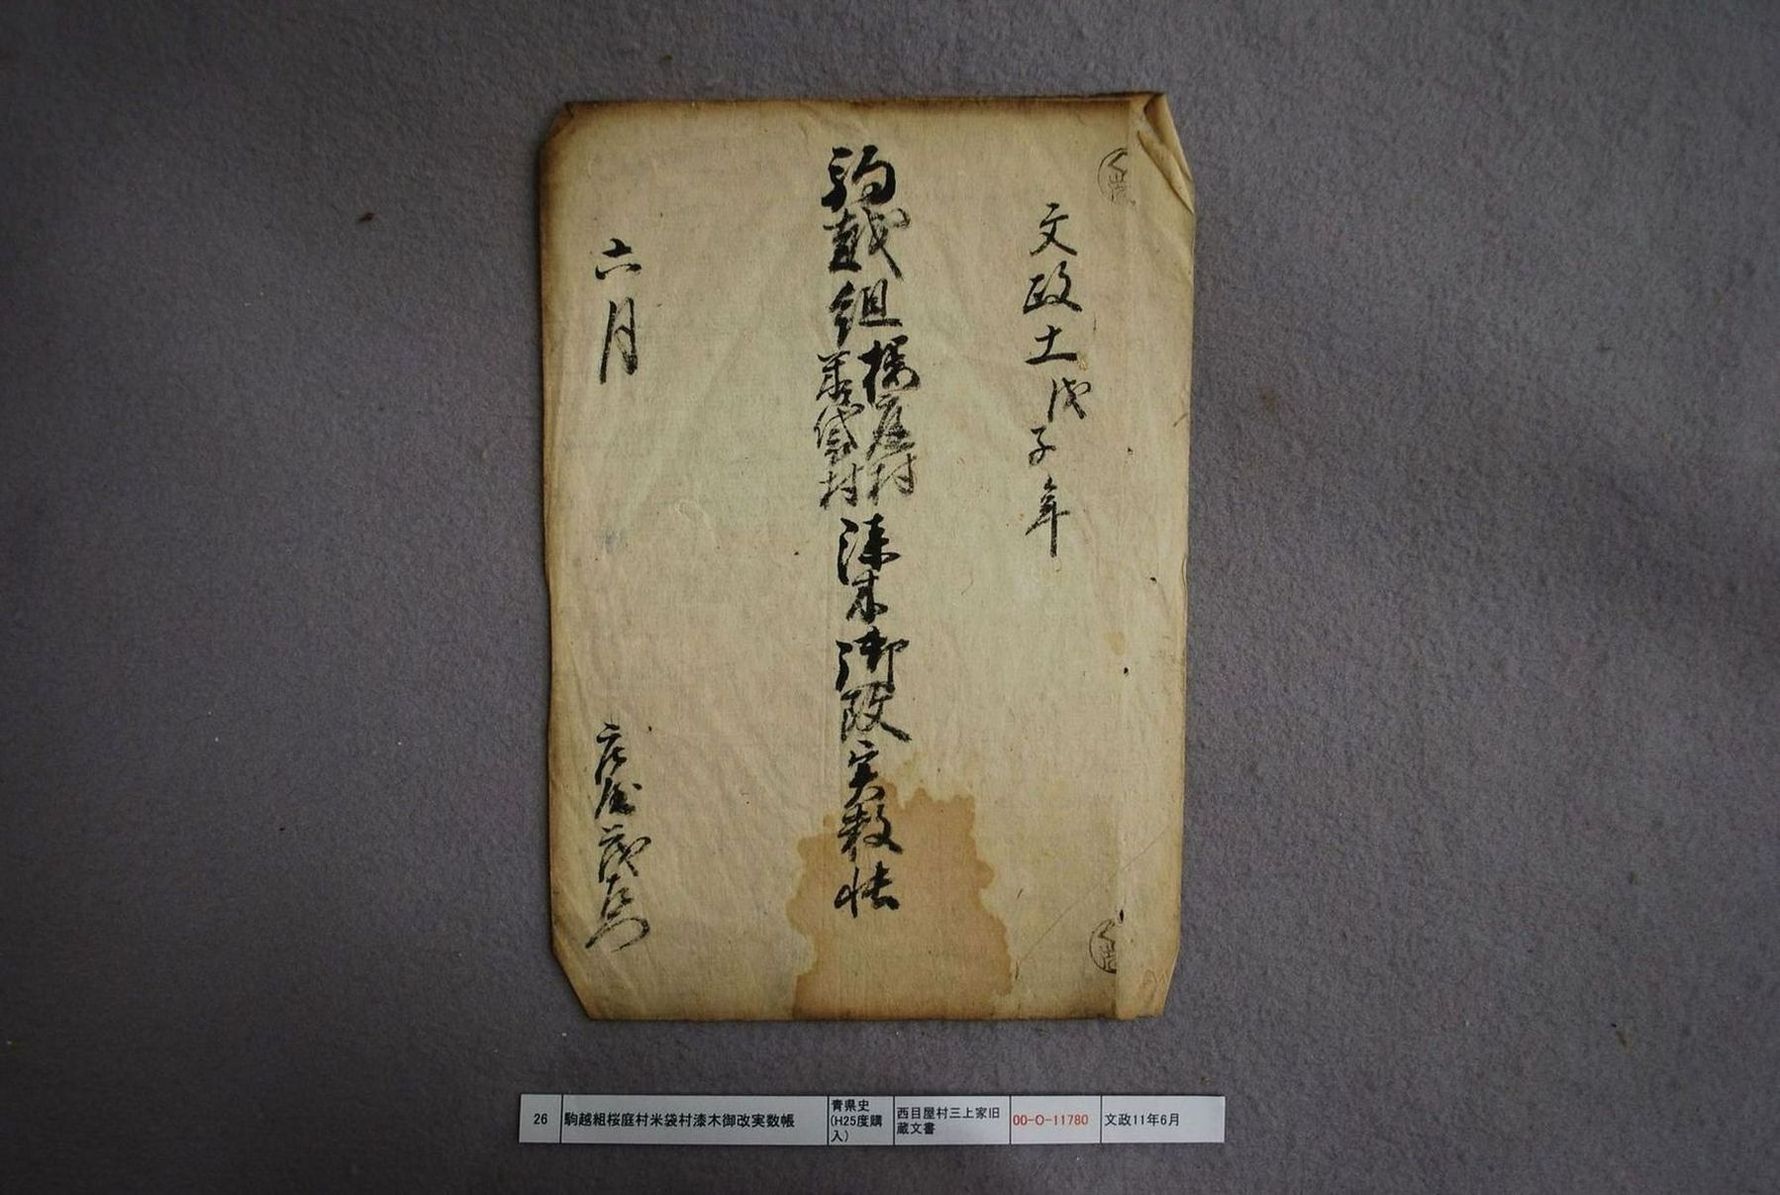 文政十一戊子年
駒越組
桜庭村
米袋村
漆木御改実数帳
六月
庄屋
26
駒越組桜庭村米袋村漆木御改実数帳
青県史
(H25度購
入)
西目屋村三上家旧
蔵文書
00-O-11780
文政11年6月